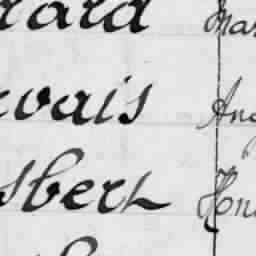 rard Mar
rvais Aug
sbert Hon